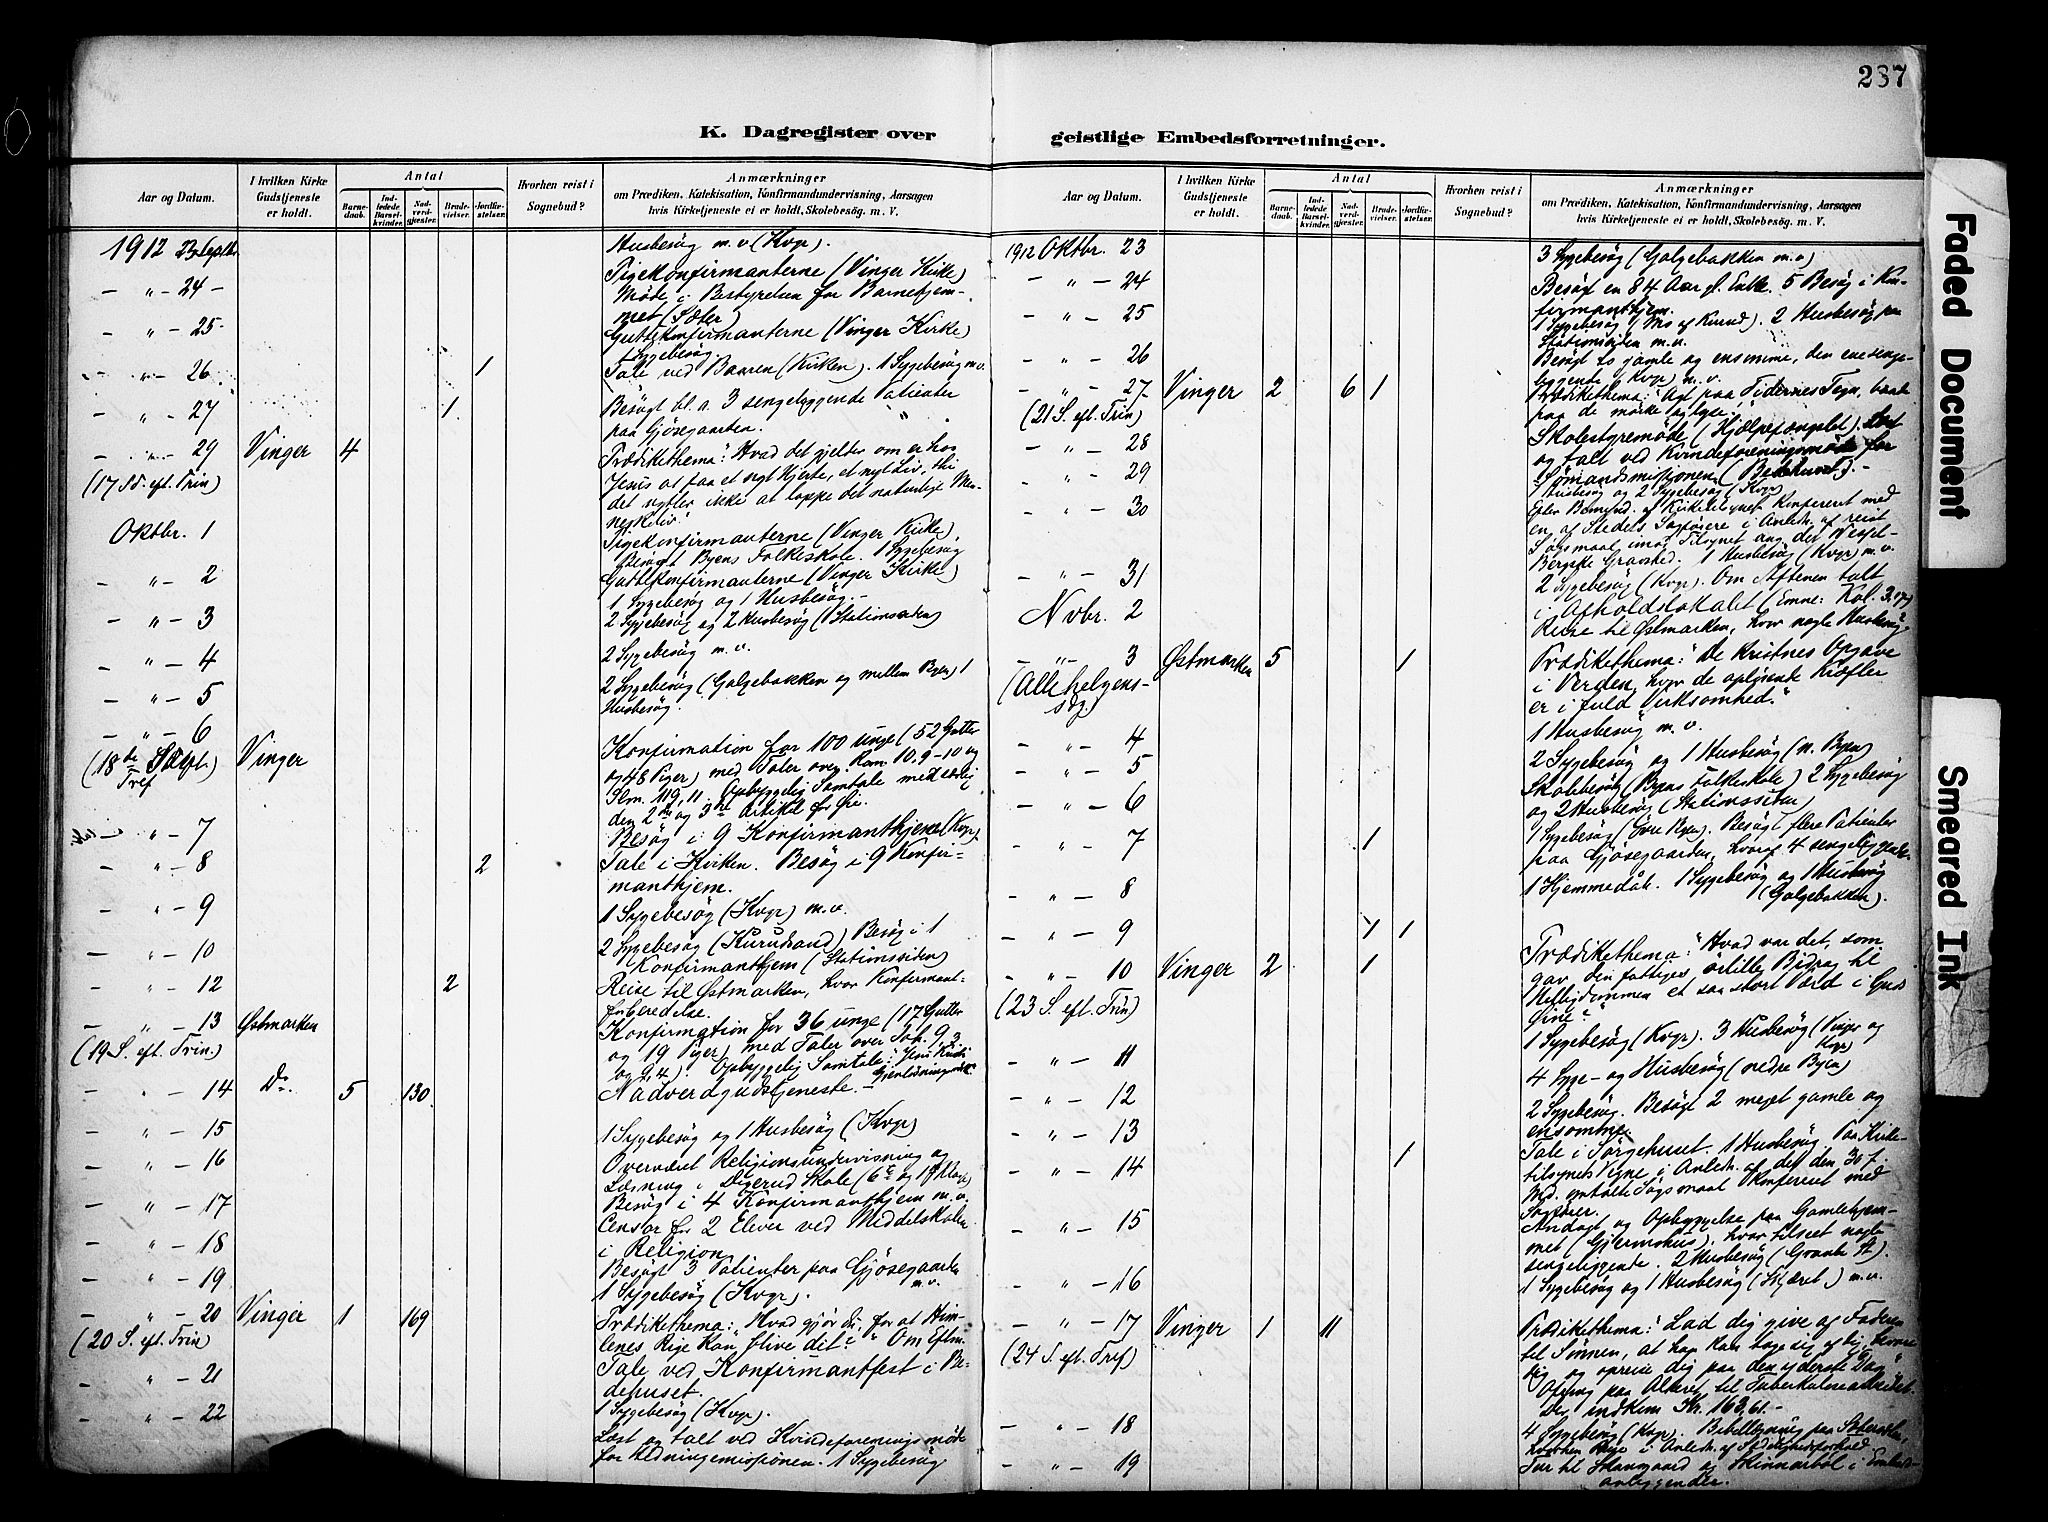 287
K. Dagregister over
geistlige Embedsforretninger.
Aar og Datum.
I hvilken Kirke Gudstjeneste er holdt.
Antal
Barnedaab.
Indledede Barselkvinder.
Nadverdgjester.
Brudevielser.
Jordfæstelser.
Hvorhen reist i Sognebud?
Anmærkninger
om Prædiken, Katekisation, Konfirmandundervisning, Aarsagen
hvis Kirketjeneste ei er holdt, Skolebesøg. m. V.
1912 23 Septbr. Husbesøg m.v. (Kvgr).
- " - 24 - Pigekonfirmanterne (Vinger Kirke)
Møde i Bestyrelsen for Barnehjem-
met (Sæter)
- " - 25 - Guttekonfirmanterne (Vinger Kirke)
1 Sygebesøg.
- " - 26 1 Tale ved Baaren (Kirken). 1 Sygebesøg m.v.
- " - 27 1 Besøgt bl.a. 3 sengeliggende Patienter
paa Gjøsegaarden.
- " - 29 Vinger 4 Prædikethema: "Hvad det gjelder om er hos
(17 S. eft. Trin) Jesus at faa et nyt Hjerte, et nyt Liv, thi
det nytter ikke at lappe det naturlige Men-
neskeliv."
Oktbr. 1 Pigekonfirmanterne (Vinger Kirke)
Besøgt Byens Folkeskole. 1 Sygebesøg
- " - 2 Guttekonfirmanterne (Vinger Kirke)
1 Sygebesøg og 1 Husbesøg. -
- " - 3 2 Sygebesøg og 2 Husbesøg (Stationssiden)
- " - 4 2 Sygebesøg m.v.
- " - 5 2 Sygebesøg (Galgebakken og mellem Byen) 1
Husbesøg.
- " - 6 Vinger Konfirmation for 100 unge (52 Gutter
(18de S. eft. Tref og 48 Piger) med Taler over Rom 10,9-10 og
Slm. 119,11. Opbyggelig Samtale med
den 2den og 3die Artikel for Øie.
- " - 7 Besøg i 9 Konfirmanthjem (Kvgr).
- " - 8 2 Tale i Kirken. Besøg i 9 Konfir-
manthjem.
- " - 9 1 Sygebesøg (Kvgr) m.v.
- " - 10 2 Sygebesøg (Kurudsand) Besøg i 1
Konfirmanthjem (Stationssiden)
- " - 12 2 Reise til Østmarken, hvor Konfirmant-
forberedelse.
- " - 13 Østmarken Konfirmation for 36 unge (17 Gutter
(19 S. eft. Trin.) og 19 Piger) med Taler over Joh. 9,3
og 9,4) Opbyggelig Samtale: "Jesu Kristi
- " - 14 Do. 5 130 Nadverdgudstjeneste. -
- " - 15 1 Sygebesøg og 1 Husbesøg (Kvgr)
- " - 16 Overværet Religionsundervisning og
Læsning i Digerud Skole (6te og 7de Klasse)
- " - 17 Besøg i 4 Konfirmanthjem m.v.
- " - 18 Censor for 2 Elever ved Middelskolen
i Religion.
- " - 19 Besøgt 3 Patienter paa Gjøsegaarden
m.v.
1 Sygebesøg (Kvgr).
- " - 20 Vinger 1 169 Prædikethema: "Hvad gjør du, for at Him-
(20 S. eft. Trin) lenes Rige kan blive dit?" Om Eftm.
Tale ved Konfirmantfest i Be-
dehuset.
- " - 21 1 Sygebesøg (Kvgr).
- " - 22 Læst og talt ved Kvindeforeningsmøde
for Hedningemissionen. 1 Sygebesøg
Aar og Datum.
I hvilken Kirke Gudstjeneste er holdt.
Antal
Barnedaab.
Indledede Barselkvinder.
Nadverdgjester.
Brudevielser.
Jordfæstelser.
Hvorhen reist i Sognebud?
Anmærkninger
om Prædiken, Katekisation, Konfirmandundervisning, Aarsagen
hvis Kirketjeneste ei er holdt, Skolebesøg, m. V.
1912 Oktbr. 23 3 Sygebesøg (Galgebakken m.v)
- " - 24 Besøgt en 84 Aar gl. Enke. 5 Besøg i Kon-
firmanthjem.
- " - 25 1 Sygebesøg (Kurud). 2 Husbesøg paa
Stationssiden m.v.
- " - 26 Besøgt to gamle og ensomme, den ene senge-
liggende (Kvgr) m.v.
- " - 27 Vinger 2 6 1 Prædikethema: "Agt paa Tidernes Tegn, baade
(21 S. eft. Trin) paa de mørke og lyse."
- " - 28 Skolestyremøde (Hjælpefængslet). Læst
og talt ved Kvindeforeningsmøde for
- " - 29 Sømandsmissionen (Bedehuset). -
1 Husbesøg og 2 Sygebesøg (Kvgr)
- " - 30 Efter Bemynd. af Kirketilsynet konfereret med
en af Stedets Sagførere i Anledn. af reist
Søgsmaal imod Tilsynet ang. det
Bergske Gravsted. 1 Husbesøg (Kvgr) m.v.
- " - 31 2 Sygebesøg (Kvgr). Om Aftenen talt
i Afholdslokalet (Emne: Kol. 3.17)
Novbr. 2 Reise til Østmarken, hvor nogle Husbesøg.
- " - 3 Østmarken 5 1 Prædikethema: "De kristnes Opgave
(Allehelgens- i Verden, hvor de opløsende Kræfter
dg.) er i fuld Virksomhed."
- " - 4 1 Husbesøg m.v.
- " - 5 2 Sygebesøg og 1 Husbesøg (n. Byen)
- " - 6 Skolebesøg (Byens Folkeskole) 2 Sygebesøg
og 2 Husbesøg (Stationssiden)
- " - 7 1 1 Sygebesøg (øvre Byen). Besøgt flere Patienter
paa Gjøsegaarden, hvoraf 4 sengeliggende.
- " - 8 1 Hjemmedåb. 1 Sygebesøg og 1 Husbesøg
(Galgebakken).
- " - 9 1 1
- " - 10 Vinger 2 1 Prædikethema: "Hvad var det, som
(23 S. eft. Trin) gav din fattiges Bidrag til
Helligdommen et saa stort Værd i Guds
Øine?"
- " - 11 1 Sygebesøg (Kvgr). 3 Husbesøg (Vinger og
Kvgr)
- " - 12 4 Syge- og Husbesøg (nedre Byen)
- " - 13 2 Sygebesøg. Besøgt 2 meget gamle og
ensomme.
- " - 14 1 Tale i Sørgehuset. 1 Husbesøg. Paa Kirke-
tilsynets Vegne i Anledn. af det den 30 f.
Md. omtalte Søgsmaal konfereret med
Sagfører.
- " - 15 Andagt og Opbyggelse paa Gamlehjem-
met (Gjermshus), hvor tilseet nogle
sengeliggende. 2 Husbesøg (Granli St).
- " - 16 1 Sygebesøg og 1 Husbesøg (Skjæret) m.v.
- " - 17 Vinger 1 11 Prædikethema: "Lad dig give af Faderen
(24 S. eft. Tref) til Sønnen, at han kan tage sig af dig, bevare
dig og opreise dig paa den yderste Dag."
Ofring paa Alteret til Tuberkulosearbeidet.
Der indkom Kr. 163,61. -
- " - 18 4 Sygebesøg (Kvgr). Bibellæsning paa
- " - 19 Tur til Skansgaard og Skinnarbøl i Embeds-
anliggender.
Faded Document
Smeared Ink